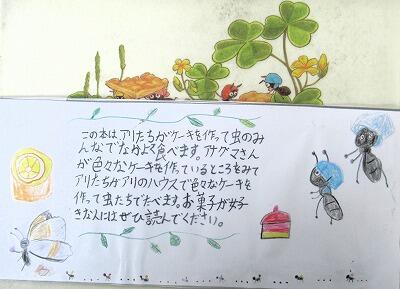 この本はアリたちがケーキを作って虫のみ
んなでなかよく食べます。アナグマさん
が色々なケーキを作っているところをみて
アリたちがアリのハウスで色々なケーキを
作って虫たちでたべます。お菓子が好
きな人にはぜひ読んでください。